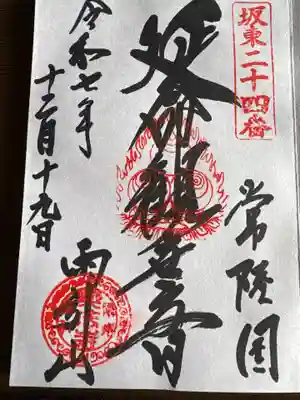 坂東二十四番
常陸国
延命観世音
雨引山
令和七年
十二月十九日